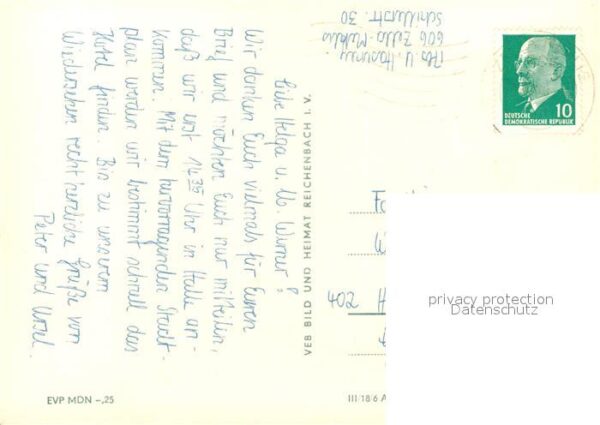 Liebe Helga u. Ulo. Werner!
Wir danken Euch vielmals für Euren
Brief und möchten Euch nur mitteilen,
daß wir erst 14.35 Uhr in Halle an-
kommen. Mit dem hervorragenden Stadt-
plan werden wir bestimmt schnell das
Hotel finden. Bis zu unserem
Wiedersehen recht herzliche Grüße von
Peter und Ursel.
EVP MDN -,25
VEB BILD UND HEIMAT REICHENBACH I. V.
III/18/6 A
U.
606 Zella-Mehlis
Schillerstr. 30
10
DEUTSCHE
DEMOKRATISCHE REPUBLIK
402 H
privacy protection
Datenschutz